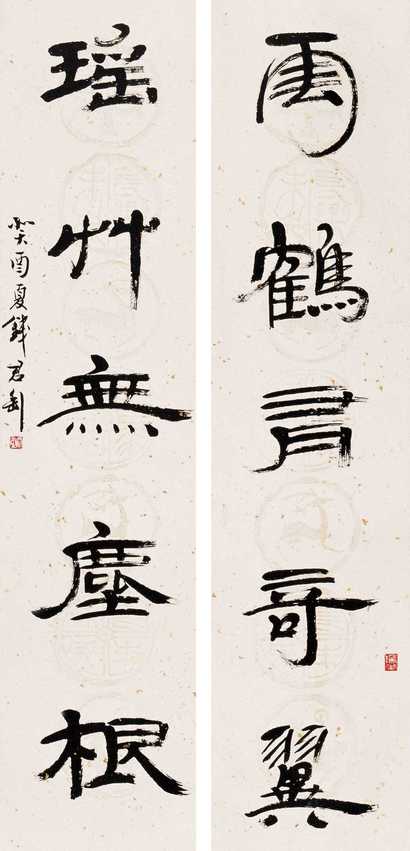 雲鶴有奇翼
瑤艸無塵根
癸酉夏錢君匋